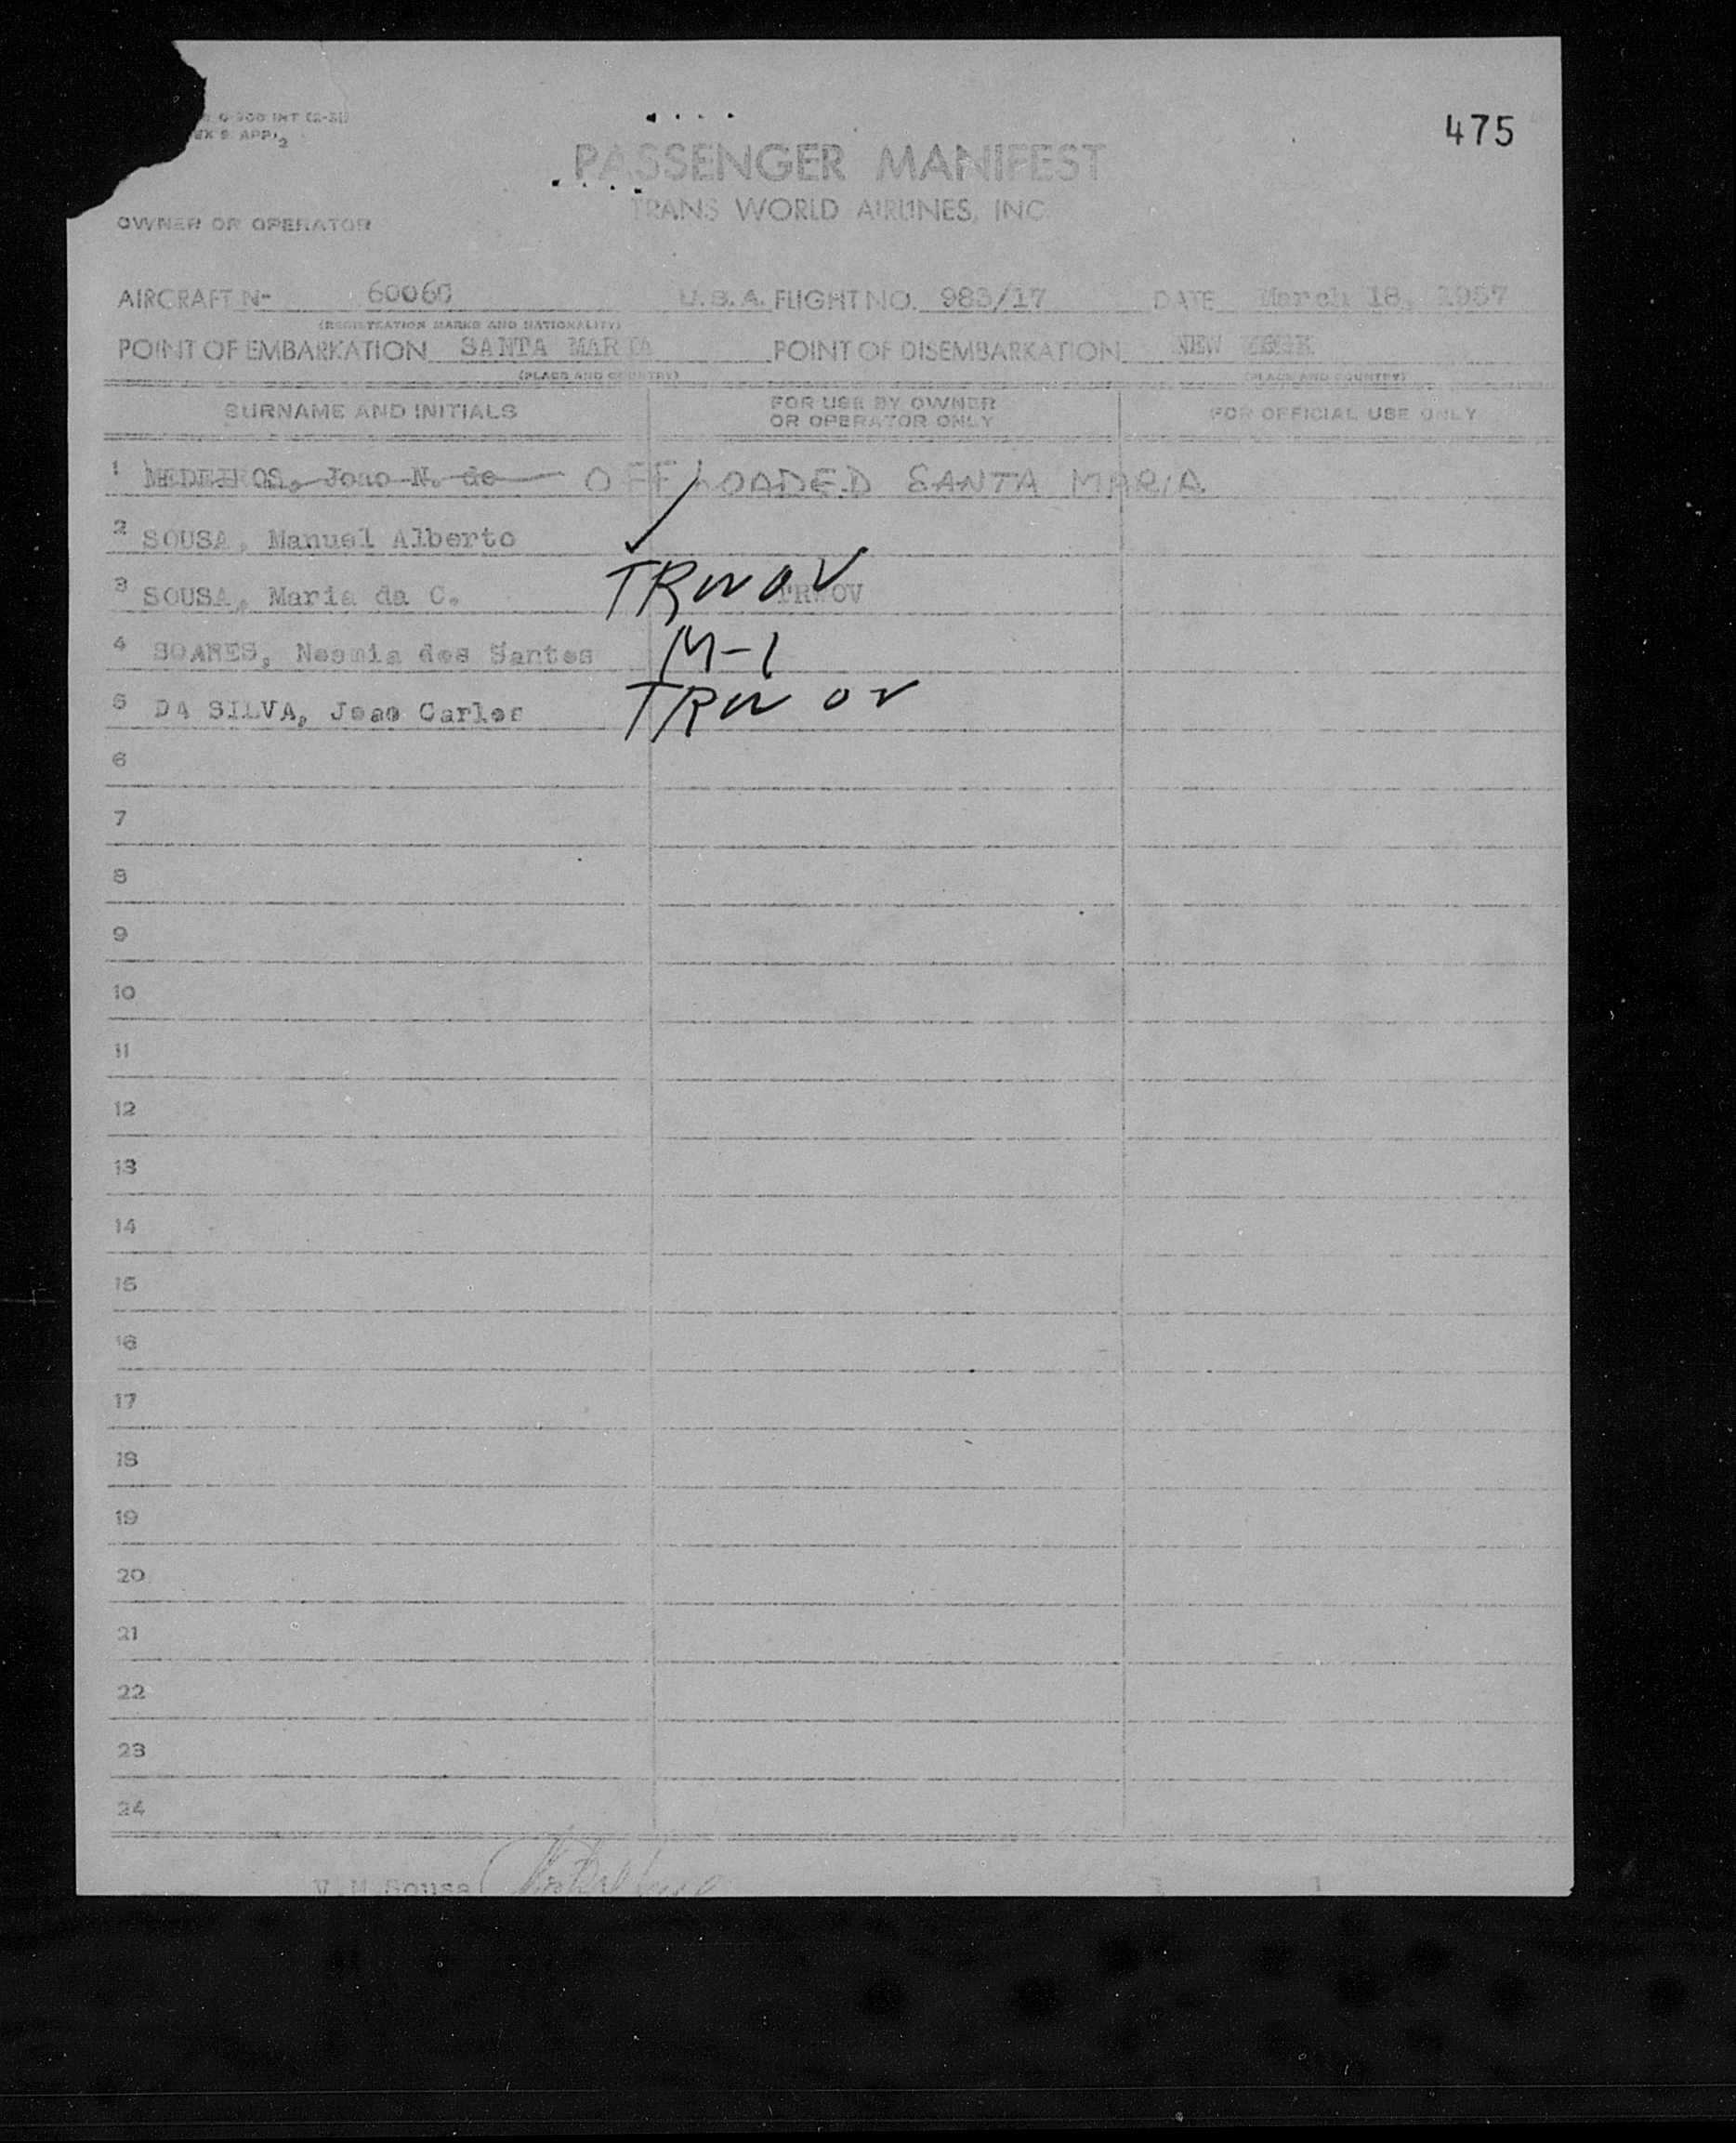 475
PASSENGER MANIFEST
TRANS WORLD AIRLINES, INC.
OWNER OR OPERATOR
AIRCRAFT N- 60060 U.S.A. FLIGHT NO. 983/17 DATE March 18, 1957
(REGISTRATION MARKS AND NATIONALITY)
POINT OF EMBARKATION SANTA MARIA POINT OF DISEMBARKATION NEW YORK
(PLACE AND COUNTRY) (PLACE AND COUNTRY)
SURNAME AND INITIALS FOR USE BY OWNER OR OPERATOR ONLY FOR OFFICIAL USE ONLY
1 MEDEIROS, Joao N. de OFFLOADED SANTA MARIA
2 SOUSA, Manuel Alberto
3 SOUSA, Maria da C. TRWOV TRWOV
4 SOARES, Neomia dos Santos M-1
5 DA SILVA, Joao Carlos TRWOV
6
7
8
9
10
11
12
13
14
15
16
17
18
19
20
21
22
23
24
Sousa